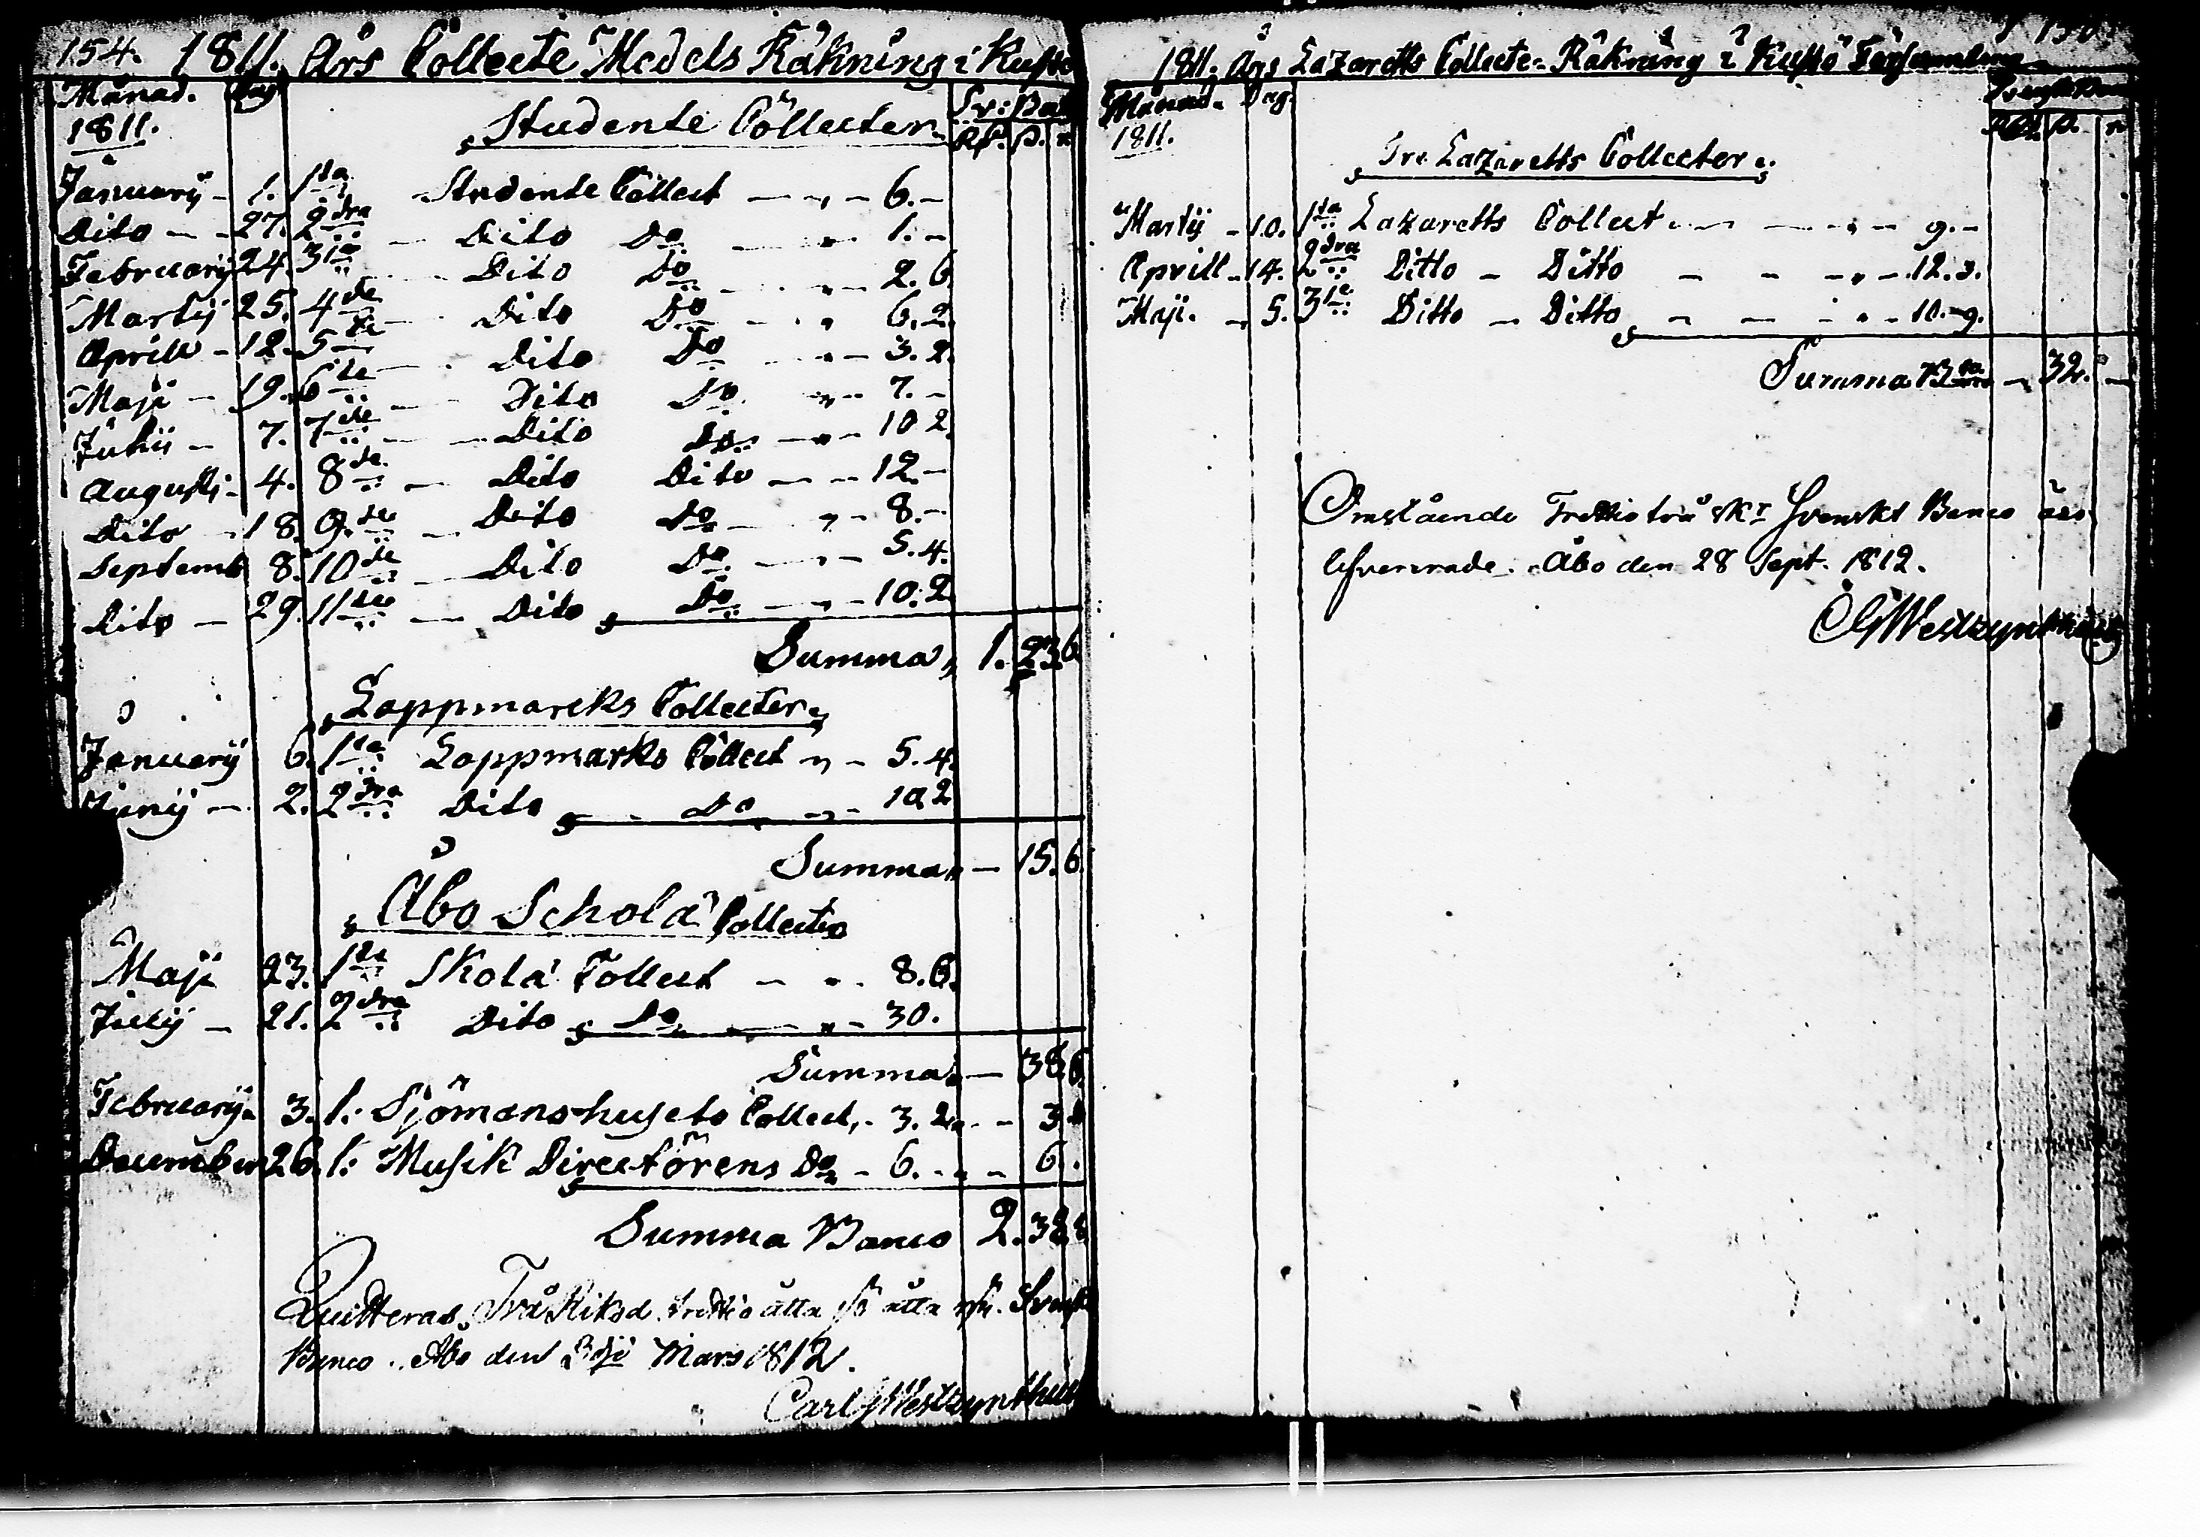 154. 1811. Års Collecte Medels Räkning i Kustö
Månad. Dag
1811. Studente Collecter
Rd. ß. r.
January - 1. 1sta Studente Collect - „ - 6. -
Dito - - 27. 2dra - Dito Do - „ 1. -
February 24. 3ie - Dito Do - „ - 2. 6.
Martij 25. 4de - Dito Do - „ 6. 2.
Aprill - 12. 5te - Dito Do - „ - 3. 2.
Maji - 19. 6te - Dito Do „ - 7. -
Julii - 7. 7de - Dito Do - „ - 10 2.
Augusti - 4. 8de - Dito Dito - - 12. -
Dito - 18. 9de - Dito Do - „ - 8. -
Septemb 8. 10de - Dito Do - „ - 5. 4.
Dito - 29. 11te - Dito Do - „ - 10. 2
Summa, 1. 23. 6
Lappmarcks Collecter
January 6. 1sta Lappmarks Collect „ - 5. 4.
Junij - 2. 2dra Dito - Do „ - 10. 2
Summa, - 15. 6.
Åbo Schola Collecter
Maji 23. 1sta Skola Collect - „ 8. 6.
Julij - 21. 2dra Dito Do - „ - 30.
Summa - 38. 6.
February 3. 1: Sjömans husets Collect, - 3. 2. - - 3. 2
December 26. 1: Musik Directörens Do - 6. - „ - 6.
Summa Banco 2. 38. 8
Quitteras Två Riksd. trettio åtta ß åtta rst. Svenskt
Banco. Åbo den 3dje Mars 1812.
Carl G Westzynthius
1811. Års Lazaretts Collecte Räkning i Kustö Församling
Månad. Dag.
1811. ß. r
Tre Lazaretts Collecter
Martij - 10. 1sta Lazaretts Collect - - „ - 9. -
Aprill - 14. 2dra Ditto - Ditto - - „ - 12. 3.
Maji. - 5. 3ie Ditto - Ditto - - „ - 10. 9.
Summa Bco - 32. -
Omstående Trettiotvå sk: Svenskt Banco äro
lefvererade. Åbo den 28 Sept. 1812.
CG Westzynthius